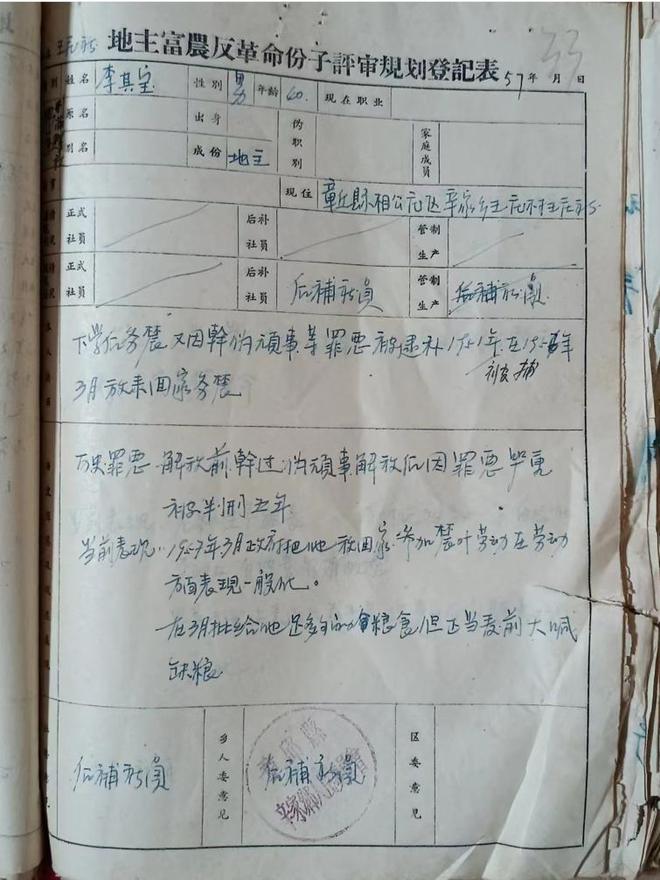 地主富農反革命份子評审規划登記表
57年 月 日
33
姓名 李其宝 性别 男 年龄 60. 现在职业
原名 出身 伪职别 家庭成員
别名 成份 地主
现住 章丘縣相公庄区辛家乡王
正式社員 后补社員 管制生产
正式社員 后补社員 后補社員 管制生产 后補社員
下学后务农 又因幹伪頑事等罪恶被逮补1951年在195 年
被捕
3月放來回家务农
历史罪恶 解放前幹过伪頑事解放后因罪恶
被判刑五年
当前表现:1957年3月政府把他放回家参加農叶劳动在劳动
方面表現一般化。
在3月批给他还多 的 粮食但正当麦前大喊
缺粮
后補社員 乡人委意見 后補社員 区委意見